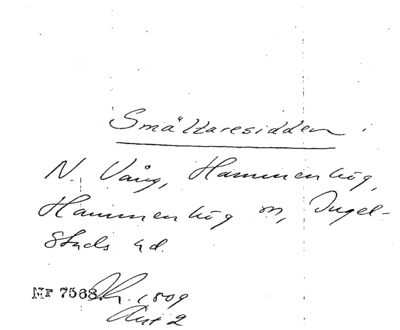 Småttaresidden
N. Vång, Hammenhög,
Hammenhög sn, Ingel-
stads hd.
Nr 7568. 1809
Akt 2